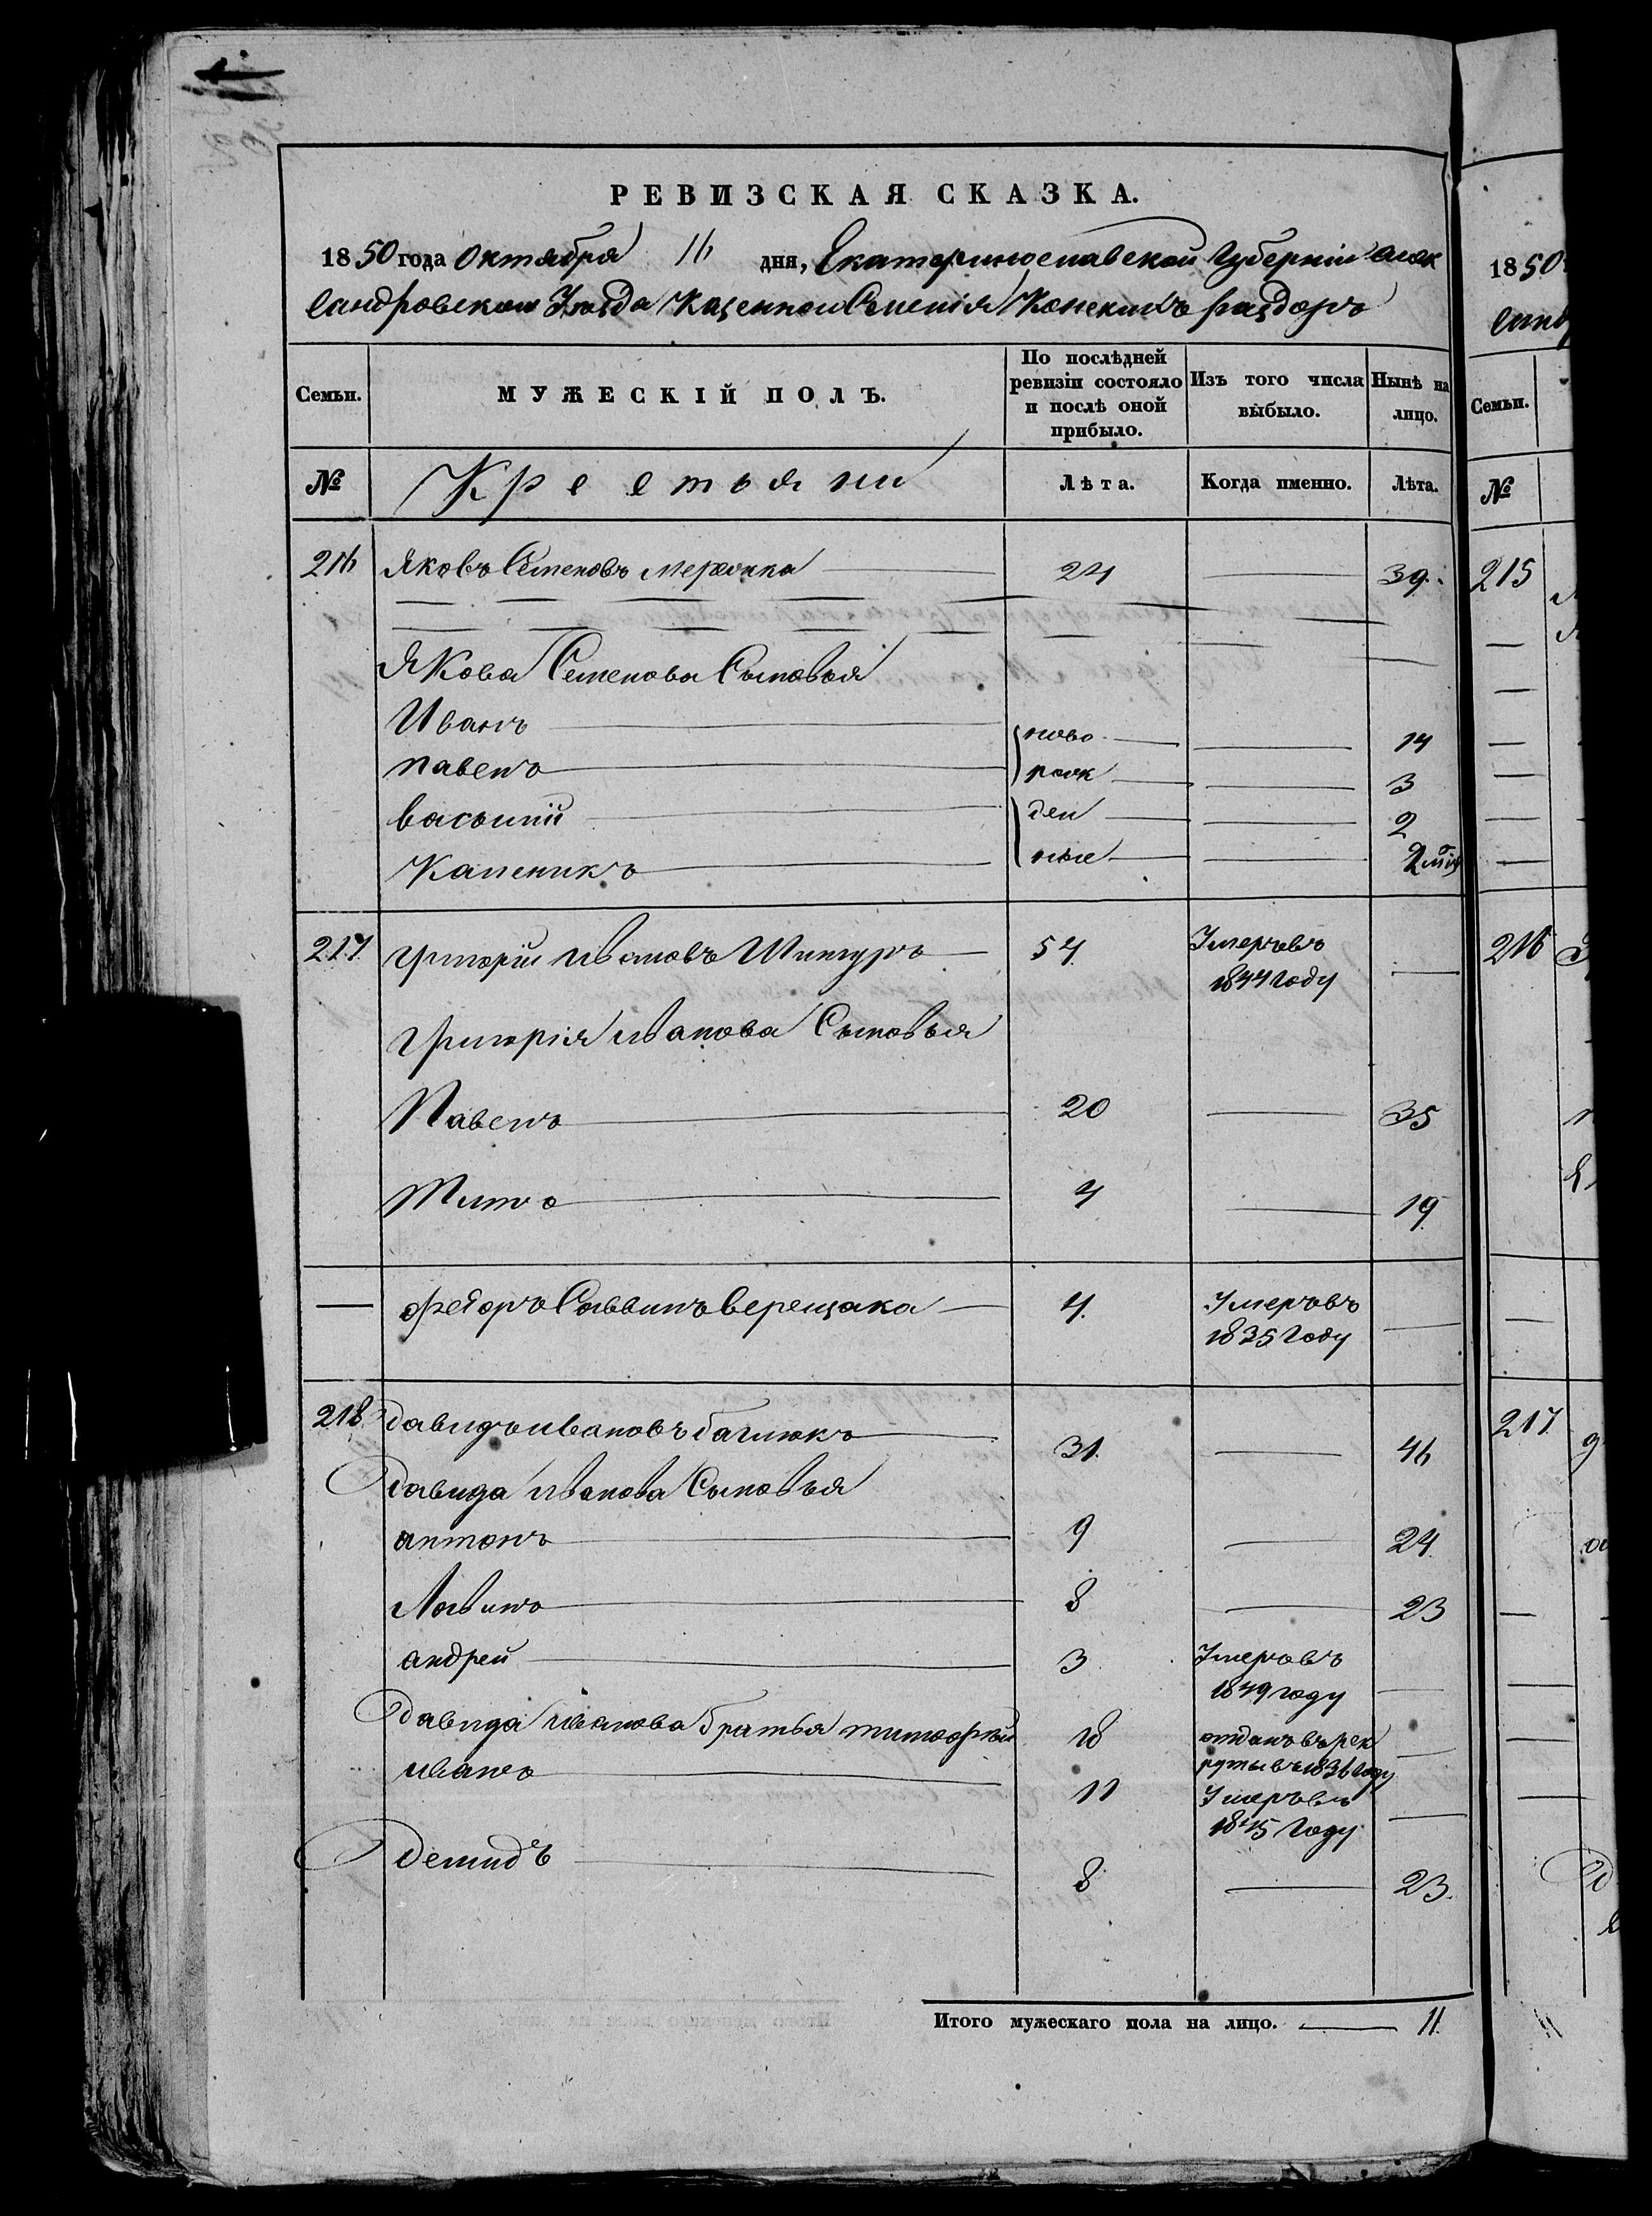 РЕВИЗСКАЯ СКАЗКА.
1850 года Октября 16 дня, Екатеринославской Губерніи алек
сандровскаго Уезда Казенного Селенія Конскихъ раздоръ
Семьи. МУЖЕСКІЙ ПОЛЪ. По послѣдней ревизіи состояло и послѣ оной прибыло. Изъ того числа выбыло. Нынѣ на лицо.
№ Крестьяни Лѣта. Когда именно. Лѣта.
216 Яковъ Семеновъ 24 — 39.
Якова Семенова Сыновья
Иванъ ново — 14
павелъ рож — 3
василий ден — 2
Каленикъ ные — 2
217 григорій Ивановъ Шинкуръ 54 Умеръ въ 1844 году —
григорія иванова Сыновья
Павелъ 20 — 35
Титъ 4 — 19
— федоръ Саввинъ верещака 4. Умеръ въ 1835 Году —
218 давидъ ивановъ баглюкъ 31. — 46
давида иванова Сыновья
антонъ 9 — 24
Логвинъ 8 — 23
андрей 3 Умеръ въ 1849 году —
давида иванова братья тимофей 18 отданъ въ рек
руты въ 1836 году —
иванъ 11 Умеръ въ 1845 Году —
демидъ 8 — 23.
Итого мужескаго пола на лицо. — 11.
1850
санд
Семьи.
№
215
216
217